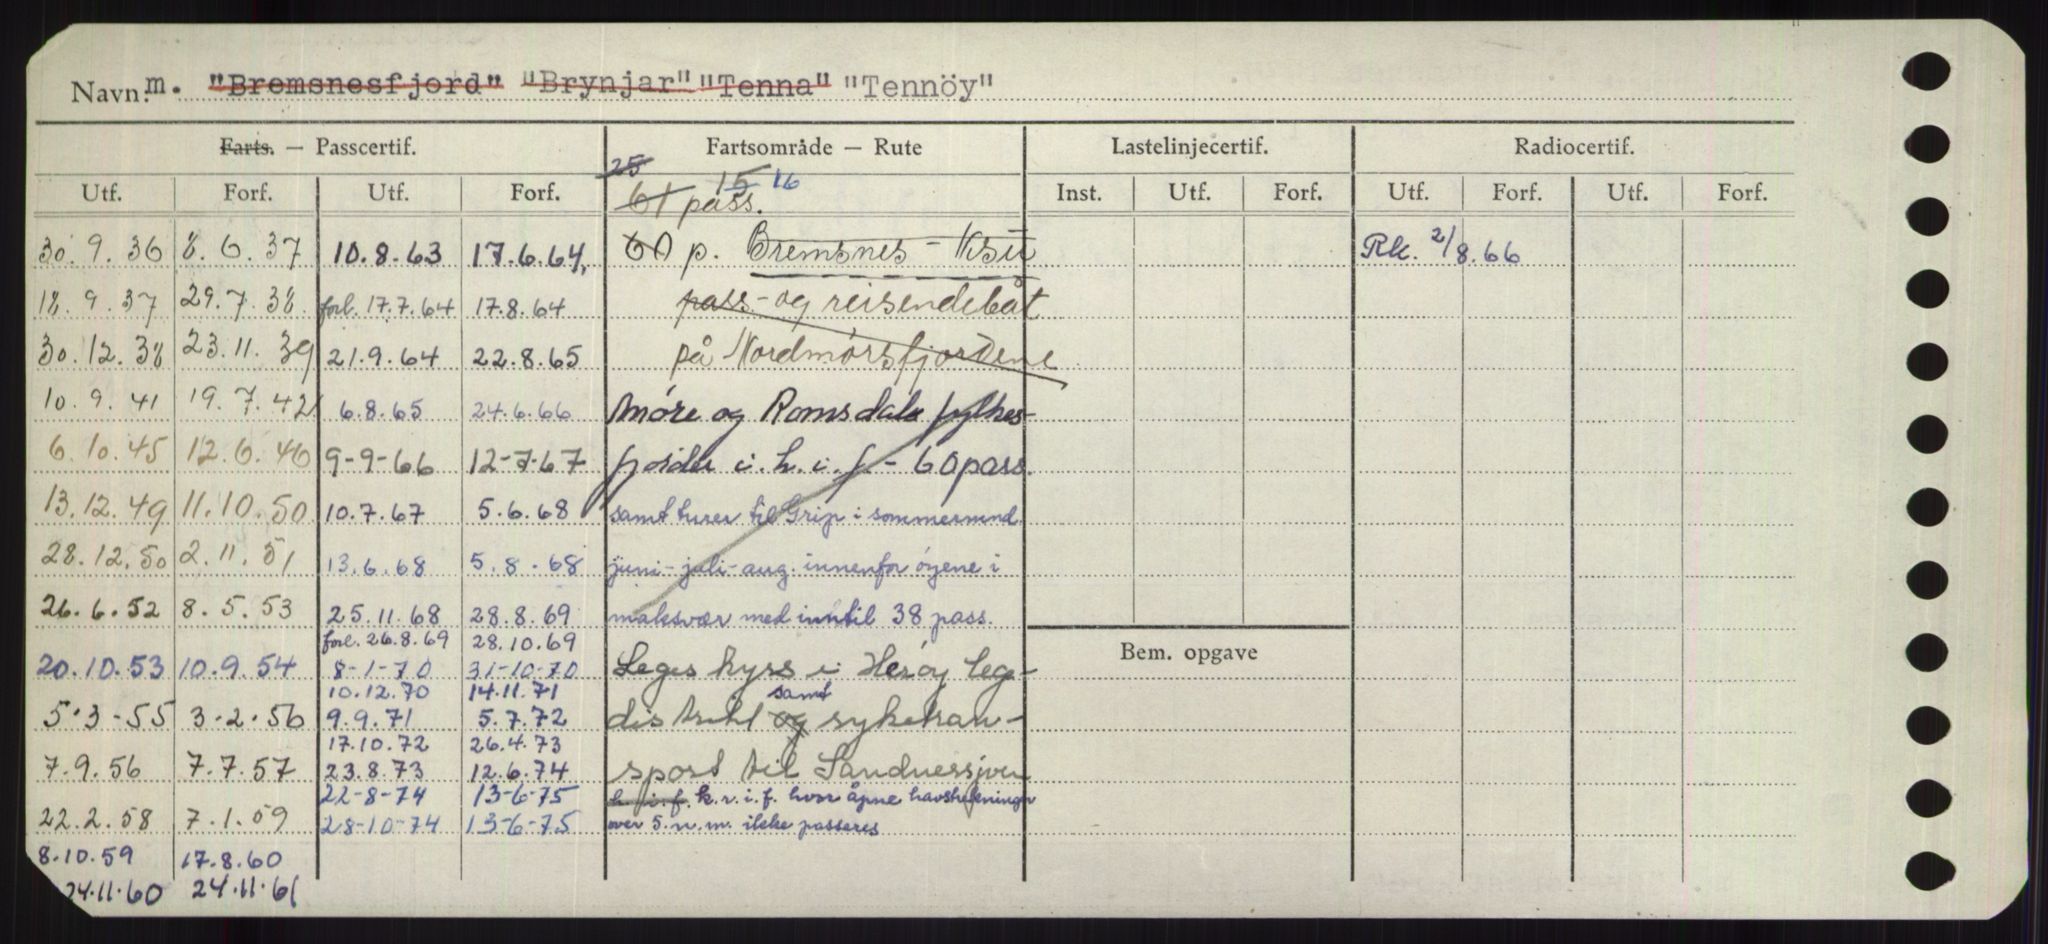 Navn. m. "Bremsnesfjord" "Brynjar" "Tenna" "Tennöy"
Farts. — Passcertif. Fartsområde — Rute Lastelinjecertif. Radiocertif.
25 15 16
Utf. Forf. Utf. Forf. 61 pass. Inst. Utf. Forf. Utf. Forf. Utf. Forf.
30.9.36 8.6.37 10.8.63 17.6.64, 60 p. Bremsnes - Ksu Rk. 2/8.66
18.9.37 29.7.38 forl. 17.7.64 17.8.64 pass.- og reisendebåt
30.12.38 23.11.39 21.9.64 22.8.65 på Nordmørsfjordene
10.9.41 19.7.42 6.8.65 24.6.66 Møre og Romsdals fylkes-
6.10.45 12.6.46 9-9-66 12-7-67 fjorder i. h. i. f - 60 pass.
13.12.49 11.10.50 10.7.67 5.6.68 samt turer til Grip i sommermnd.
28.12.50 2.11.51 13.6.68 5.8.68 juni - juli - aug. innenfor øyene i
26.6.52 8.5.53 25.11.68 28.8.69 maksvær med inntil 38 pass.
forl. 26.8.69 28.10.69
20.10.53 10.9.54 8-1-70 31-10-70 Leges kyss i Herøy lege- Bem. opgave
10.12.70 14.11.71 samt
5.3-55 3-2-56 9.9.71 5.7.72 distrikt og syketran-
17.10.72 26.4.73
7.9.56 7.7.57 23.8.73 12.6.74 sport til Sandnessjøen
22-8-74 13-6-75 h. i. f. k.r.i.f. hvor åpne havstrekninger
22.2.58 7.1.59 28-10-74 13-6-75 over 5. n. m. ikke passeres
8.10.59 17.8.60
24.11.60 24.11.61